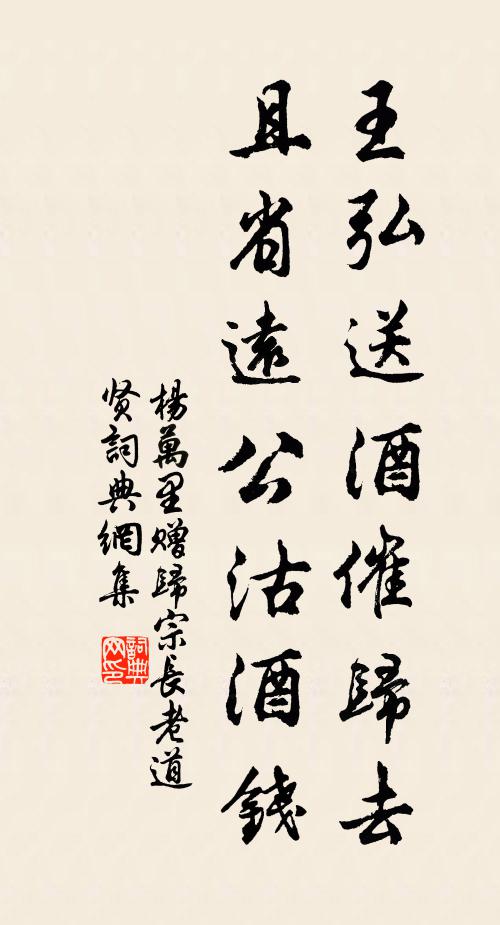 王弘送酒催歸去
且省遠公沽酒錢
楊萬里贈歸宗長老道
贤詞典網集
詞典網印